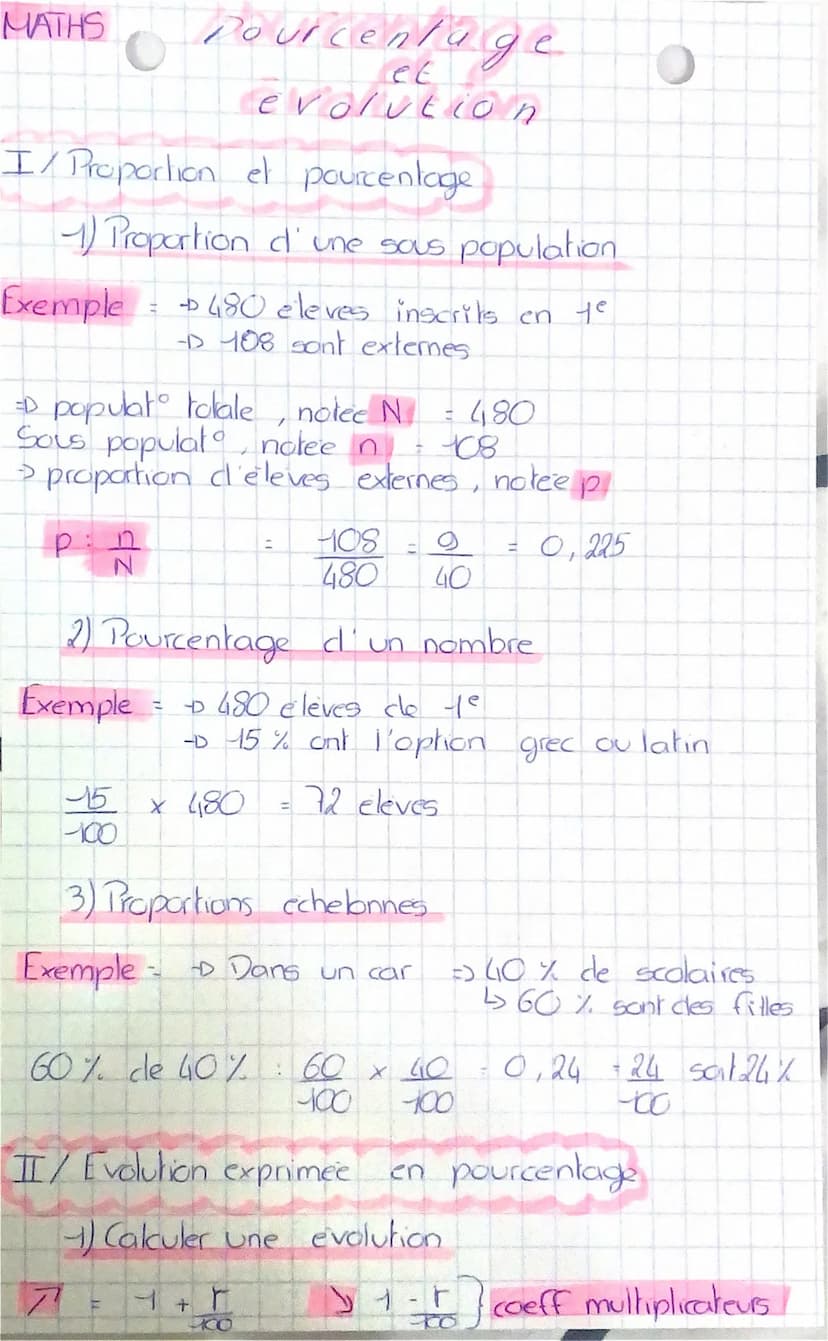 MATHS
Pourcentage
et
évolution
I/ Proportion et pourcentage
1) Proportion d'une sous population
Exemple = → 480 eleves inscrits en 1e
→ 108 sont externes
=> populat° totale, notée N = 480
Sous populat°, notee n = 108
→ proportion d'élèves externes, notée p
p = n/N = 108/480 = 9/40 = 0,225
2) Pourcentage d'un nombre
Exemple = → 480 élèves de 1e
→ 15 % ont l'option grec ou latin
15/100 x 480 = 72 eleves
3) Proportions echelonnes
Exemple = → Dans un car => 40 % de scolaires
↳ 60 % sont des filles
60 % de 40 % : 60/100 x 40/100 = 0,24 = 24/100 soit 24 %
II/ Evolution exprimée en pourcentage
1) Calculer une evolution
↗ = 1 + r/100 ↘ 1 - r/100 } coeff multiplicateurs